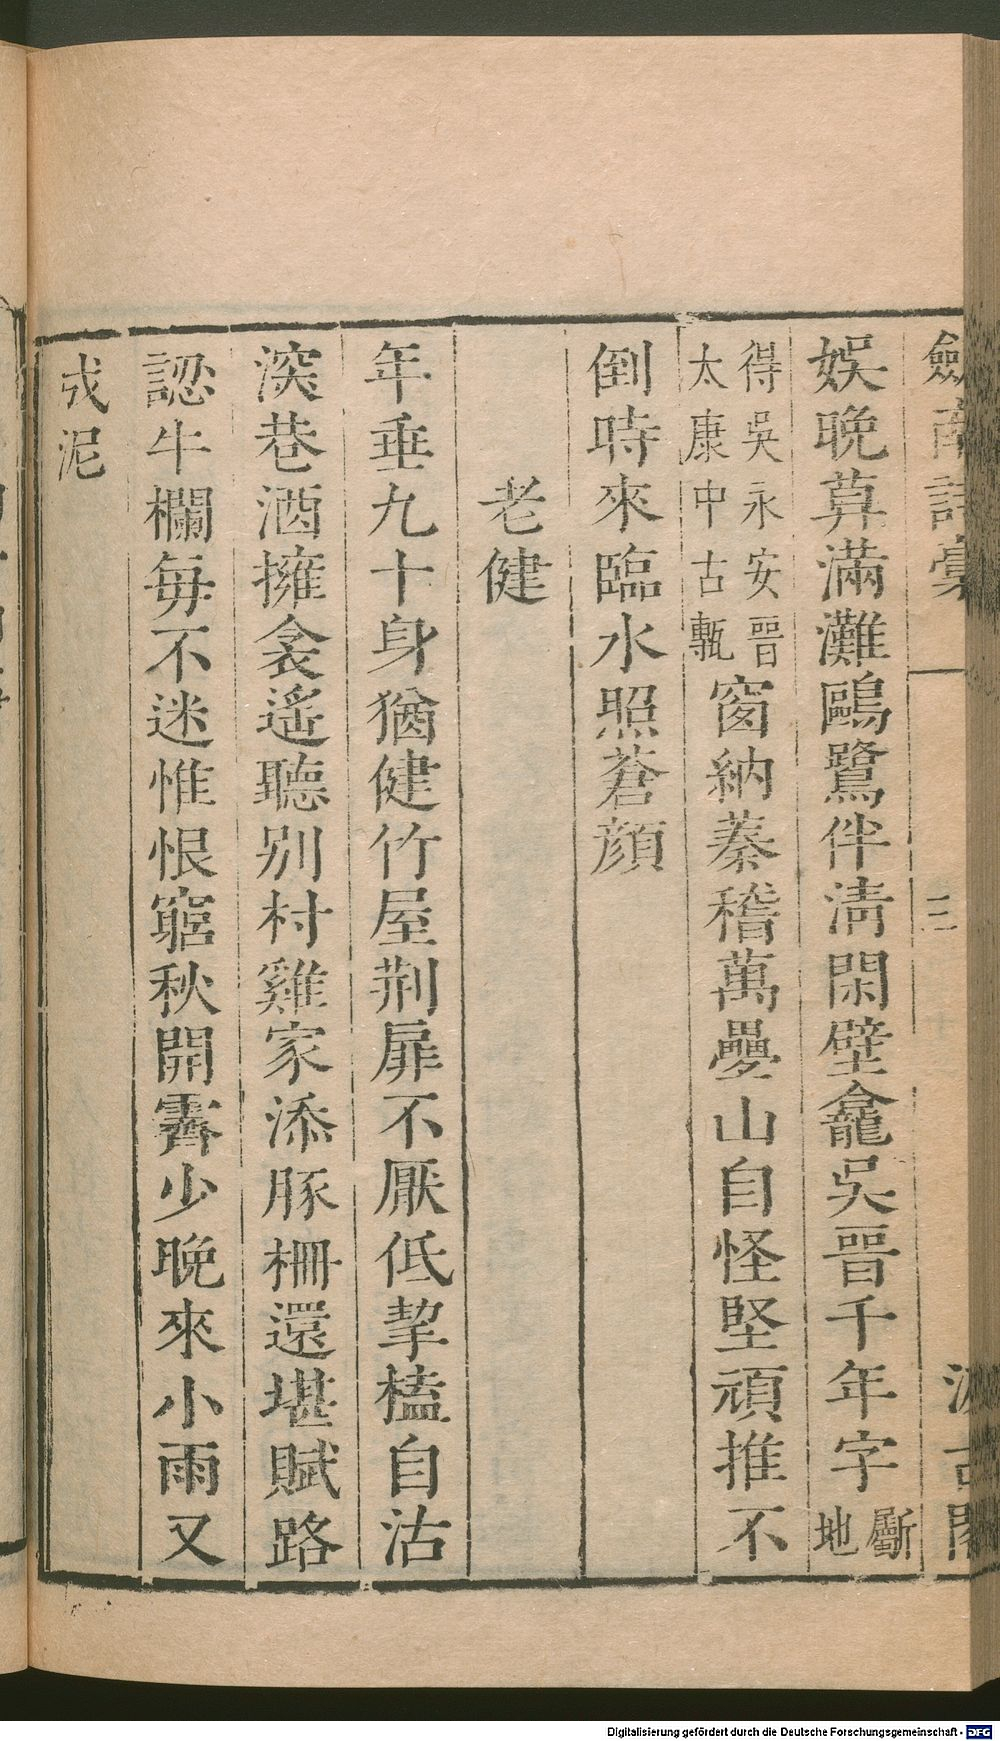 劍南詩稾 三 汲古閣
娛晚算滿灘鷗鷺伴淸閑壁龕吳晉千年字斸地
得吳永安晉太康中古甎窗納秦稽萬疊山自怪堅頑推不
倒時來臨水照蒼顔
老健
年垂九十身猶健竹屋荆扉不厭低挈榼自沽
深巷酒擁衾遙聽别村雞家添豚柵還堪賦路
認牛欄每不迷惟恨窮秋開霽少晚來小雨又
成泥
Digitalisierung gefördert durch die Deutsche Forschungsgemeinschaft - DFG